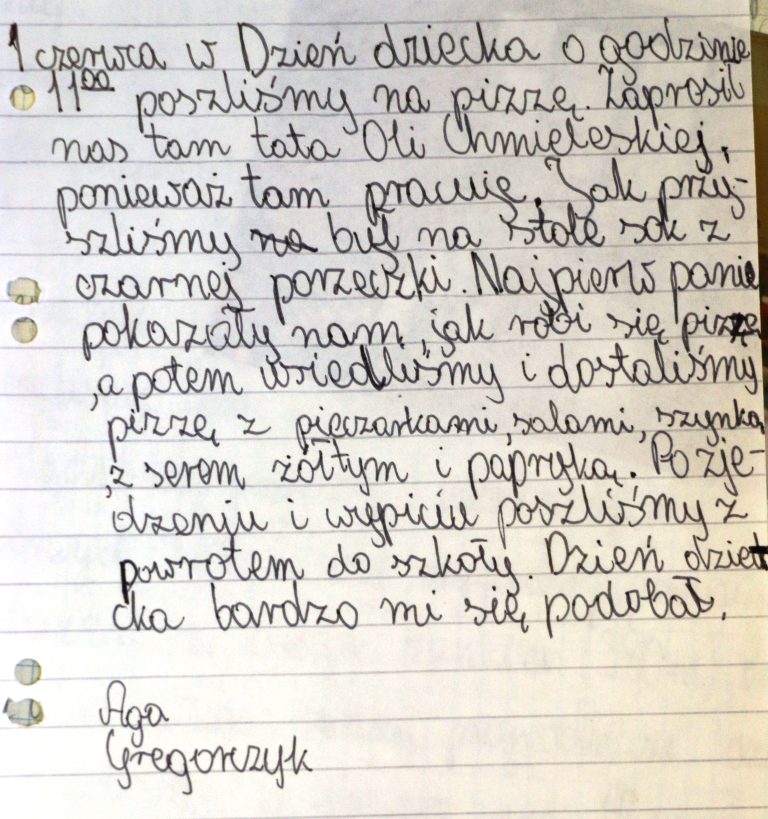 1 czerwca w Dzień dziecka o godzinie
11⁰⁰ poszliśmy na pizzę. Zaprosił
nas tam tata Oli Chmieleskiej,
ponieważ tam pracuje. Jak przy-
szliśmy na był na stole sok z
czarnej porzeczki. Najpierw panie
pokazały nam, jak robi się pizzę
,a potem usiedliśmy i dostaliśmy
pizzę z pieczarkami, salami, szynką
,z serem żółtym i papryką. Po zje-
dzeniu i wypiciu poszliśmy z
powrotem do szkoły. Dzień dzie
cka bardzo mi się podobał.
Aga
Gregorczyk